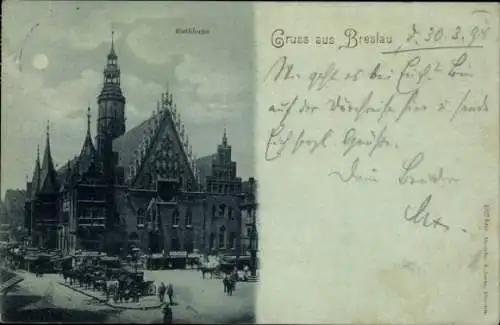 Rathhaus
Gruss aus Breslau
d. 30.3.98
Wie geht es bei Euch? Bin
auf der Durchreise hier u. sende
Euch herzl. Grüße.
Dein Bruder